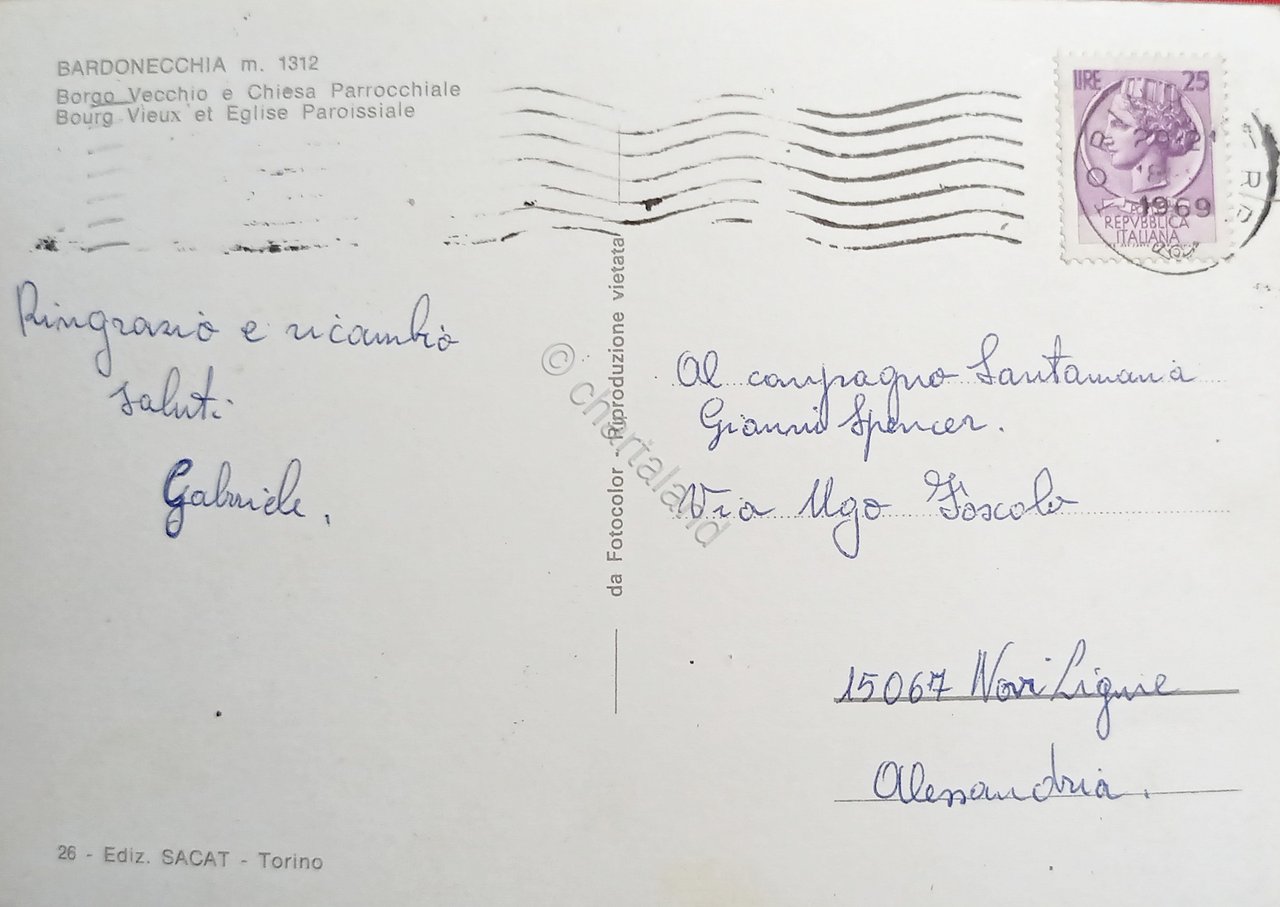 BARDONECCHIA m. 1312
Borgo Vecchio e Chiesa Parrocchiale
Bourg Vieux et Eglise Paroissiale
LIRE 25
1969
REPVBBLICA
ITALIANA
Ringrazio e ricambio
saluti
Gabriele,
da Fotocolor - Riproduzione vietata
© chartaland
Al compagno Santamaria
Gianni Spencer.
Via Ugo Foscolo
15067 Novi Ligure
Alessandria.
26 - Ediz. SACAT - Torino